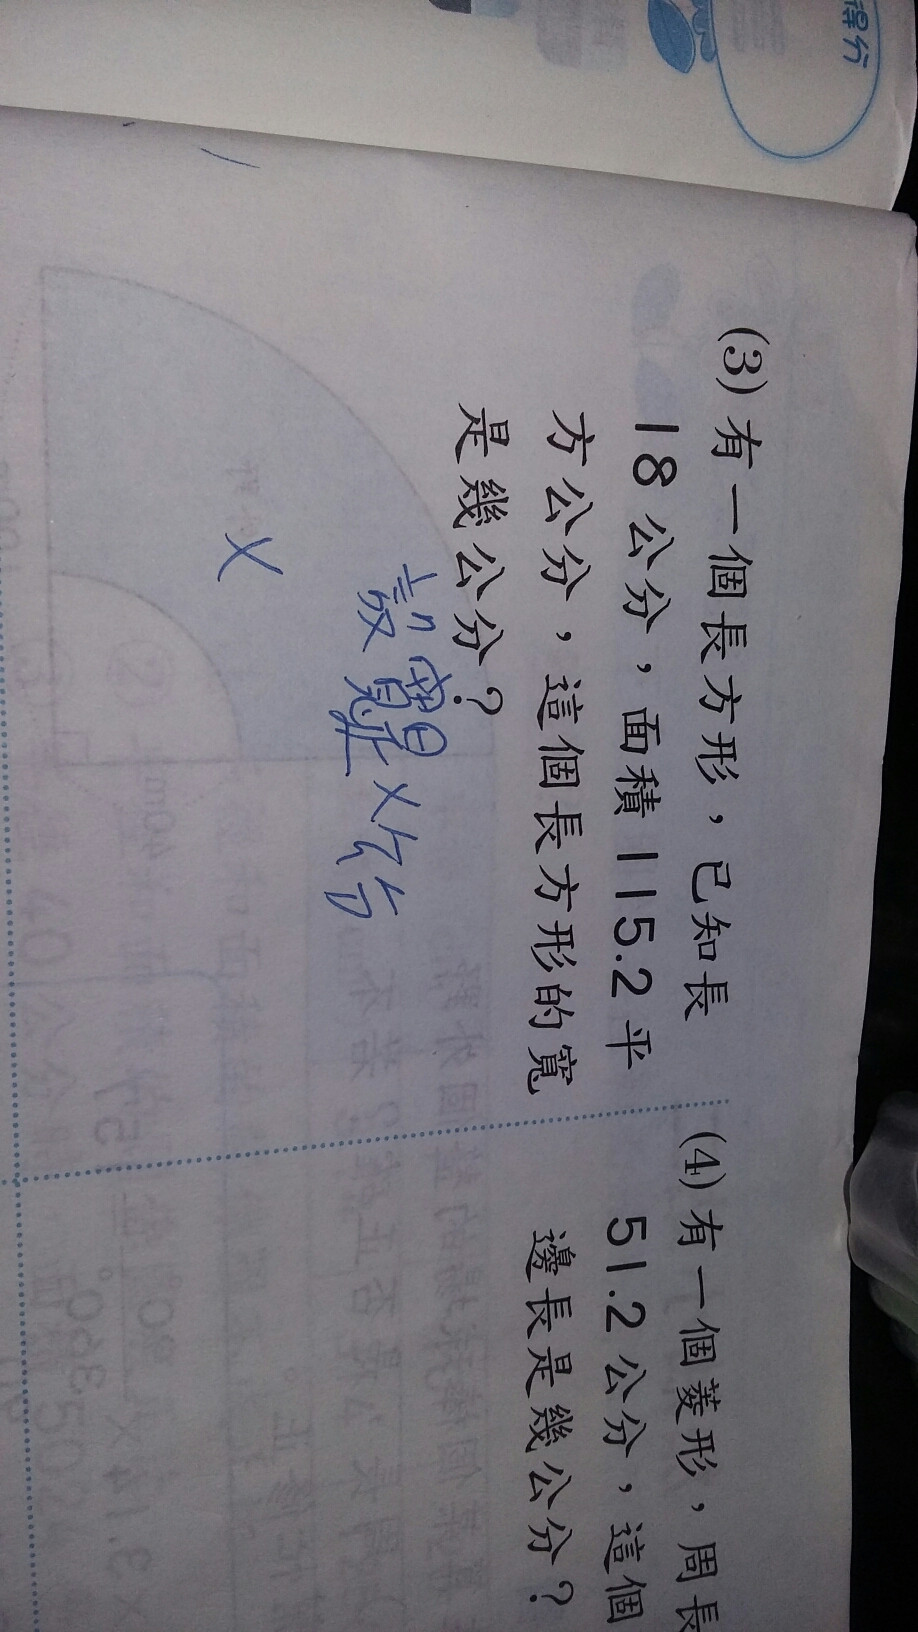 得分
(3) 有一個長方形，已知長
18公分，面積115.2平
方公分，這個長方形的寬
是幾公分？
設寬是x公分
x
(4) 有一個菱形，周長
51.2公分，這個
邊長是幾公分？